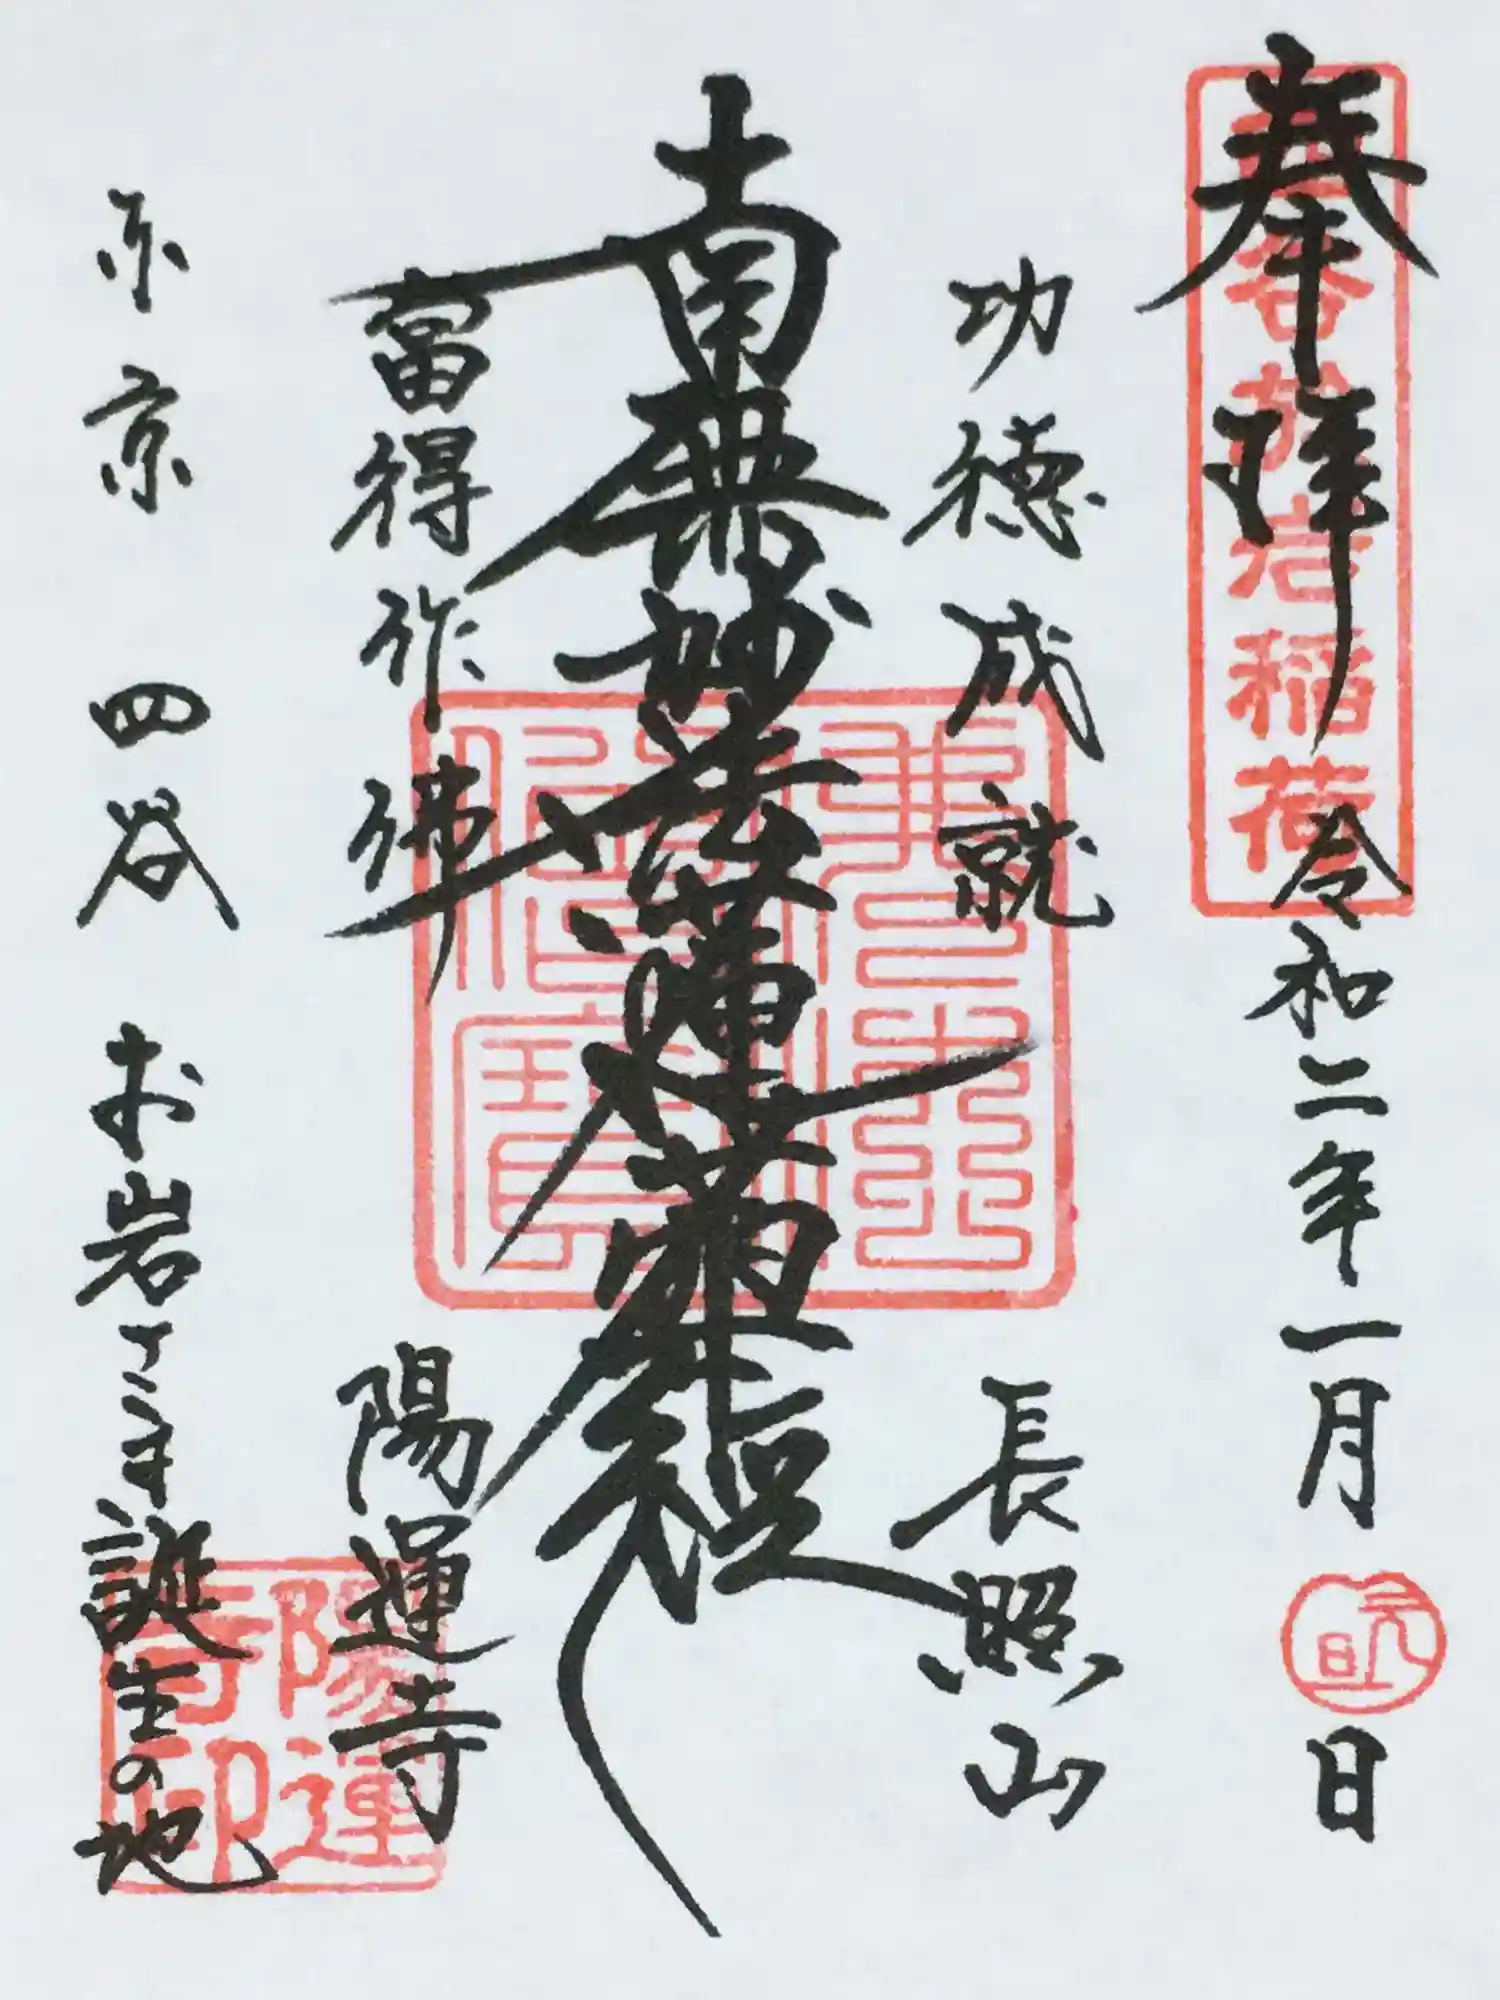 奉拝
四谷於岩稲荷
令和二年一月
元旦
日
功德成就
長照山
南無妙法蓮華経
富得作佛
陽運寺
陽運寺印
东京 四谷 お岩さま誕生の地